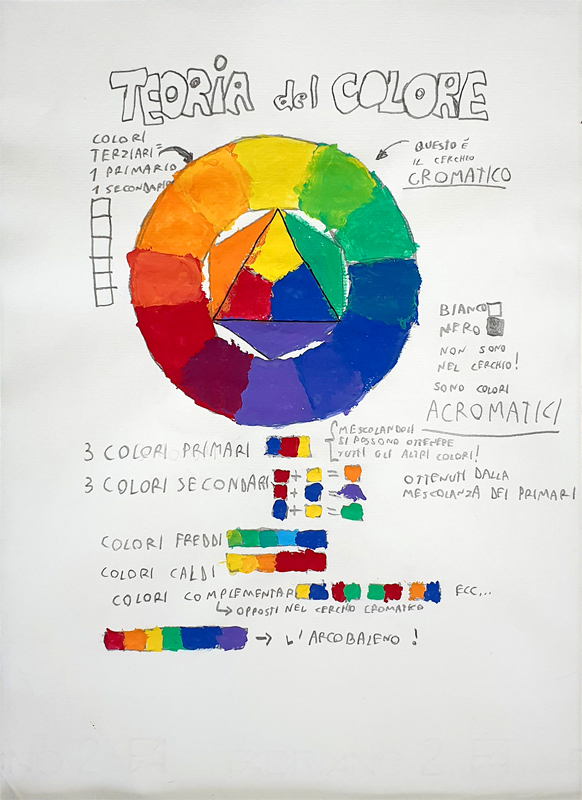 TEORIA del COLORE
COLORI
TERZIARI =
1 PRIMARIO
1 SECONDARIO
QUESTO È
IL CERCHIO
CROMATICO
BIANCO
NERO
NON SONO
NEL CERCHIO!
SONO COLORI
ACROMATICI
3 COLORI PRIMARI
MESCOLANDOLI
SI POSSONO OTTENERE
TUTTI GLI ALTRI COLORI!
3 COLORI SECONDARI
+ =
+ =
+ =
OTTENUTI DALLA
MESCOLANZA DEI PRIMARI
COLORI FREDDI
COLORI CALDI
COLORI COMPLEMENTARI
ECC...
OPPOSTI NEL CERCHIO CROMATICO
→ L'ARCOBALENO!